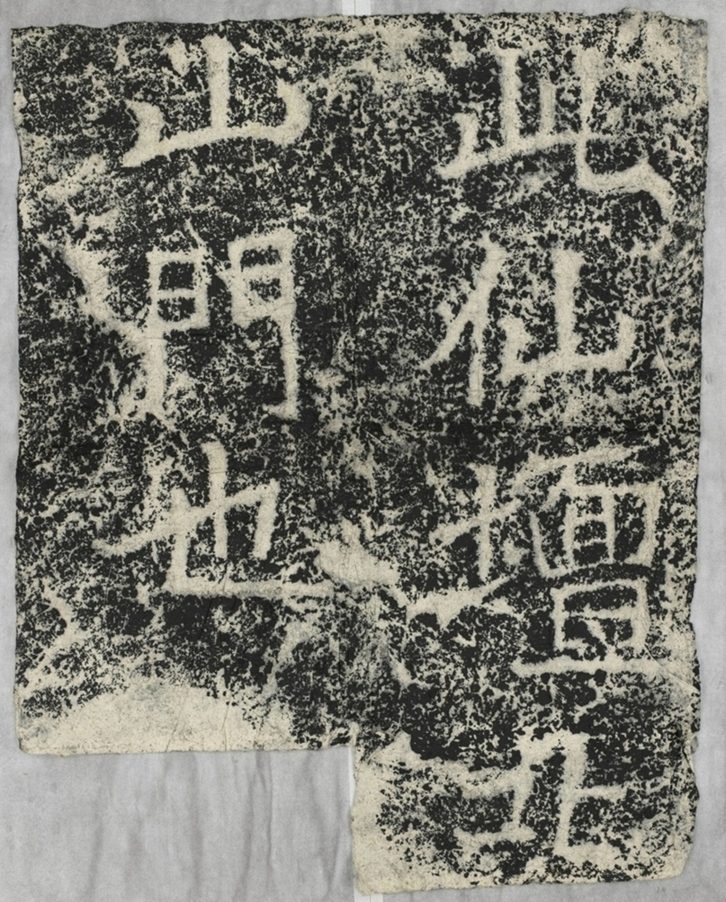 此仙壇北
山門也